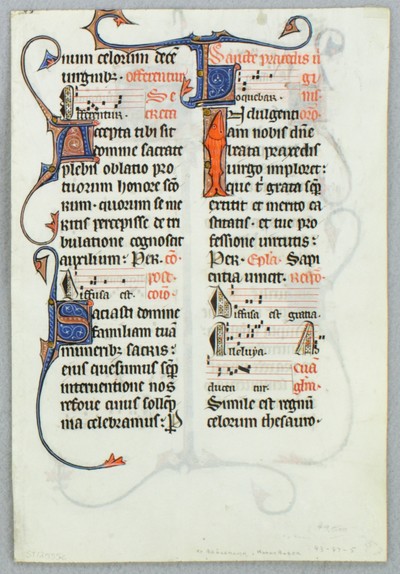 num celorum decē
uirginibꝫ. offerentur
Offerentur. Se
creta
Accepta tibi sit
domine sacrate
plebis oblatio pro
tuorum honore scō
rum. quorum se me
ritis percepisse de tri
bulatione cognoscit
auxilium: Per. cō.
post
Diffusa est. coīo.
Saciasti domine
familiam tuā
muneribꝫ sacris:
eius quesumus sēp
interuentione nos
refoue cuius sollēp
nia celebramus: P
Sancte praxedis ū
gī
nis.
Loquebar. orō.
Indulgenciam
nobis dn̄e
beata praxedis
uirgo imploret:
que t̄ grata sēp
extitit et merito ca
stitatis. et tue pro
fessione uirtutis:
Per. Epla. Sapi
entia uincit. Respō.
Diffusa est gratia.
Alleluya. A
ducen tur. euā
glm̄.
Simile est regnū
celorum thesauro.